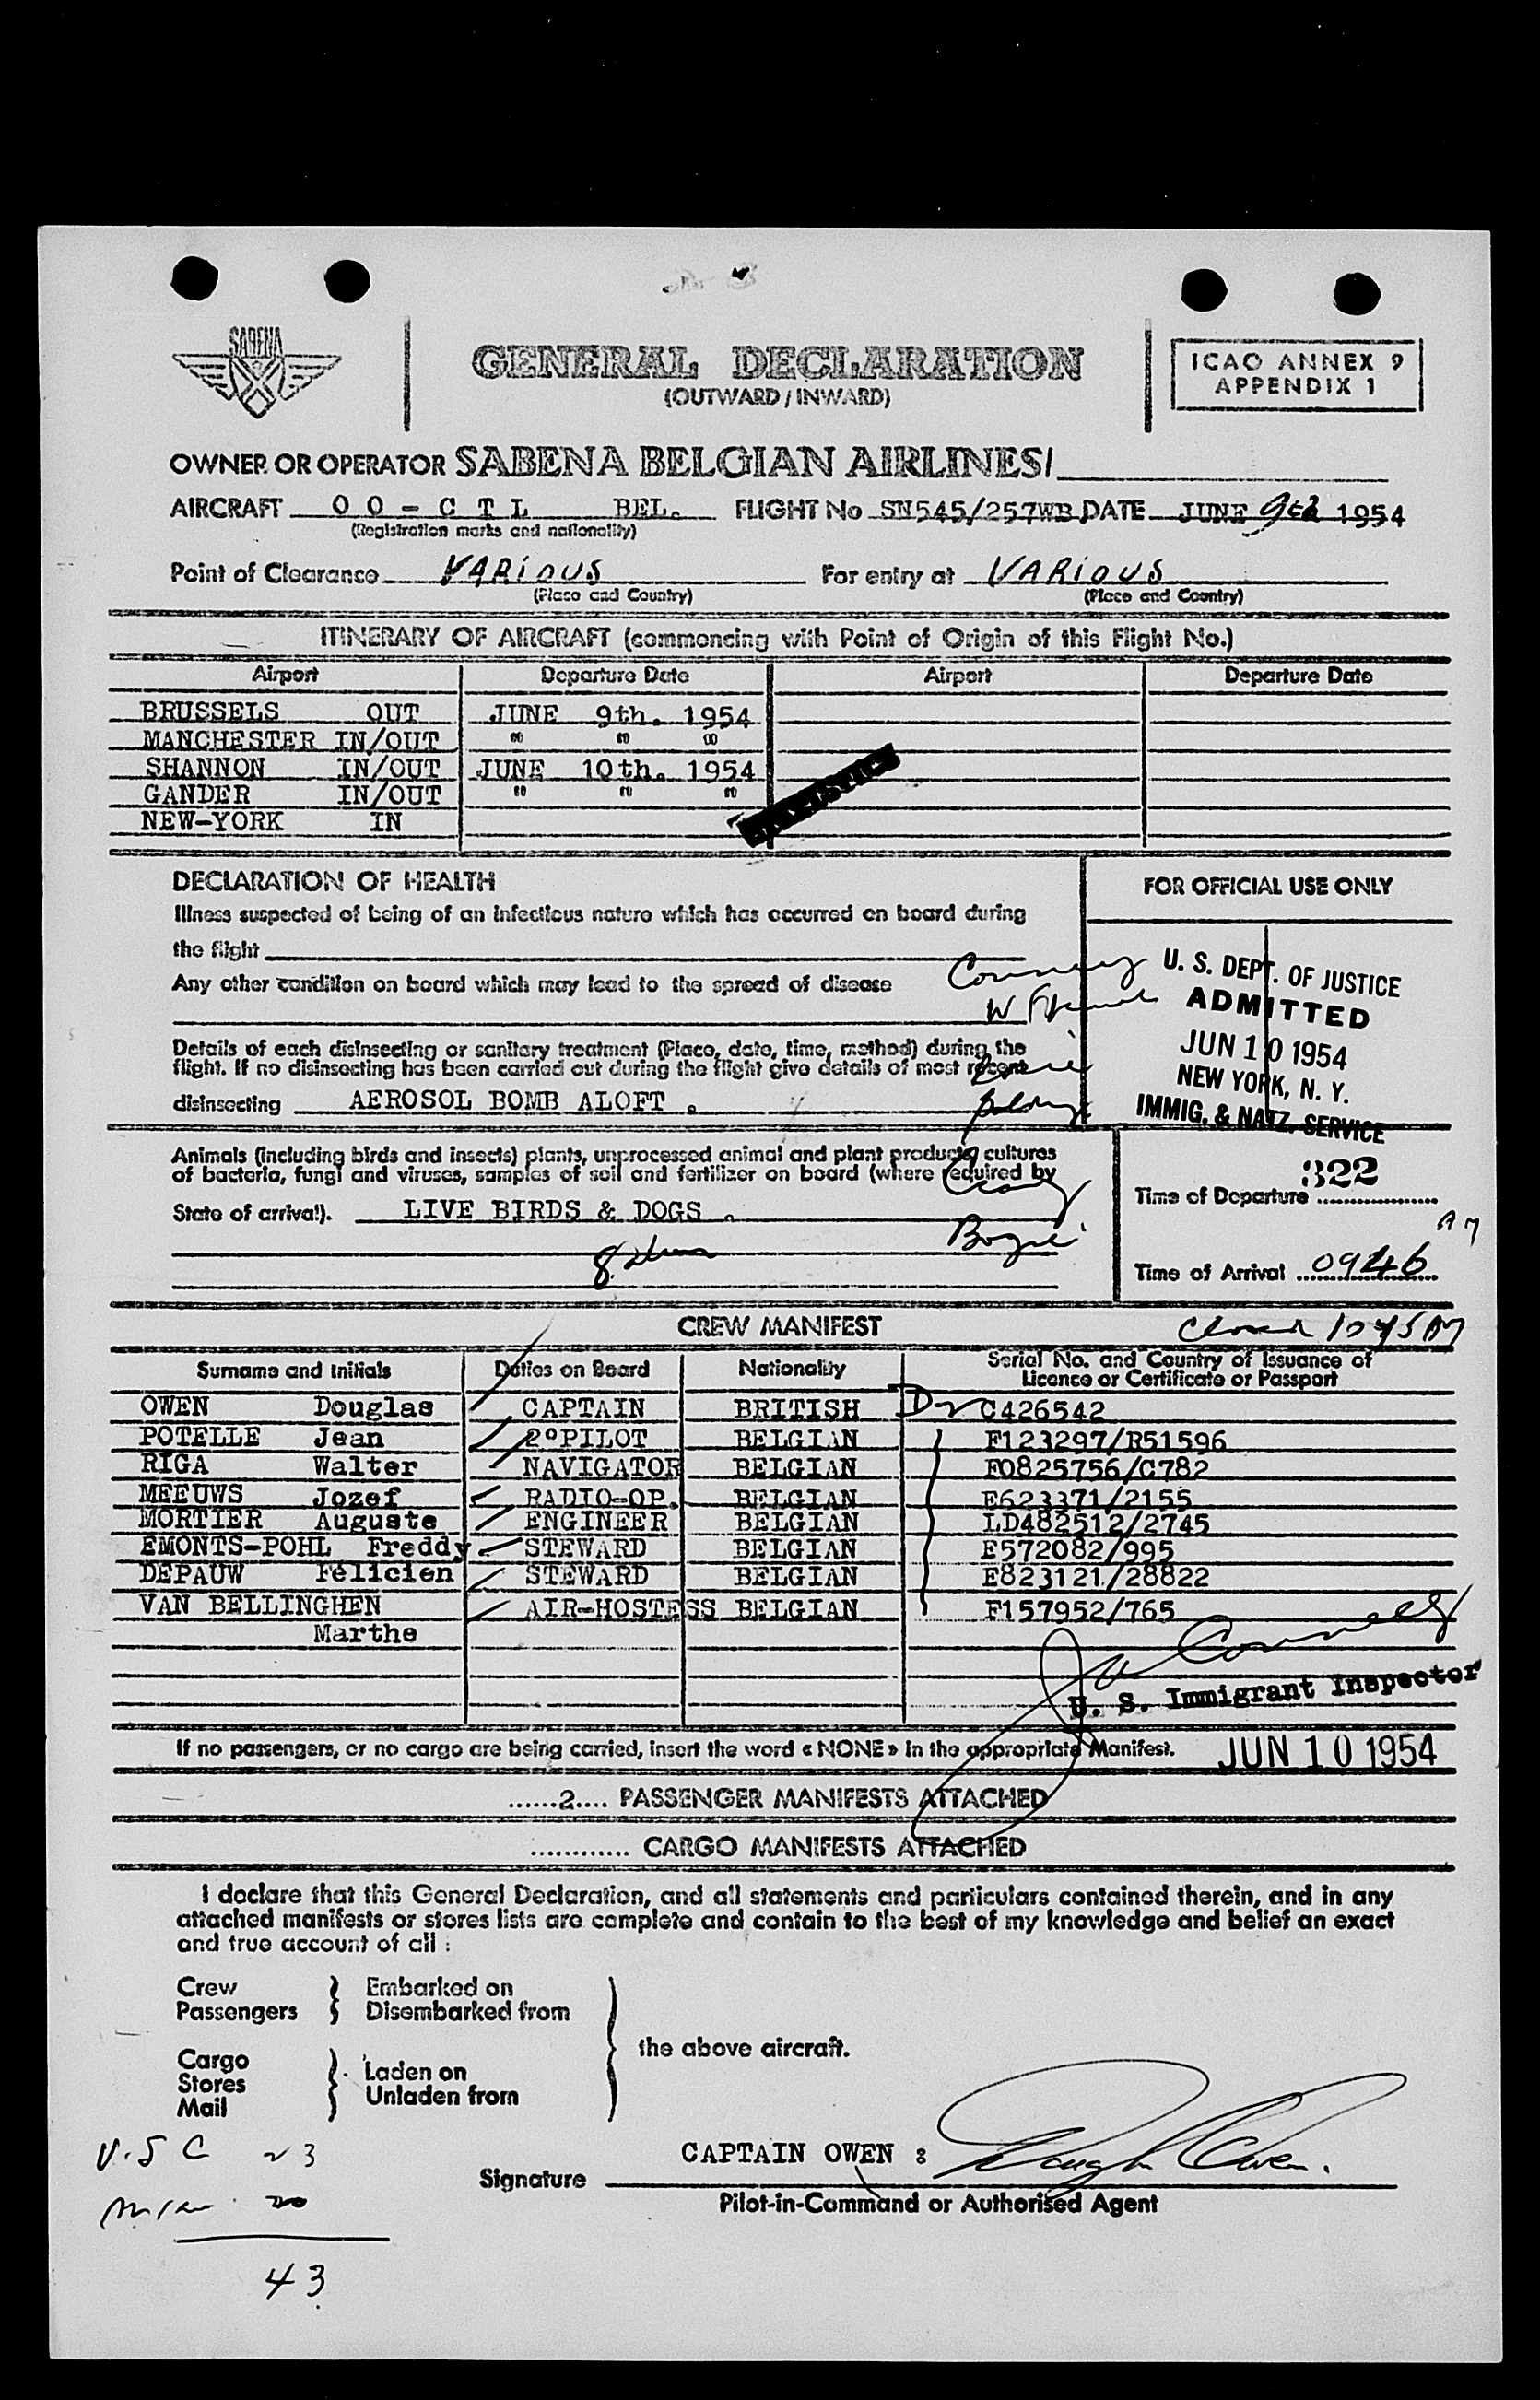 SABENA
GENERAL DECLARATION
(OUTWARD / INWARD)
ICAO ANNEX 9
APPENDIX 1
OWNER OR OPERATOR SABENA BELGIAN AIRLINES/
AIRCRAFT O O - C T L BEL. FLIGHT No SN545/257WB DATE JUNE 9th 1954
(Registration marks and nationality)
Point of Clearance VARIOUS For entry at VARIOUS
(Place and Country) (Place and Country)
ITINERARY OF AIRCRAFT (commencing with Point of Origin of this Flight No.)
Airport Departure Date Airport Departure Date
BRUSSELS OUT JUNE 9th. 1954
MANCHESTER IN/OUT " " "
SHANNON IN/OUT JUNE 10th. 1954
GANDER IN/OUT " " "
NEW-YORK IN
DECLARATION OF HEALTH
Illness suspected of being of an infectious nature which has occurred on board during
the flight
Any other condition on board which may lead to the spread of disease
Details of each disinsecting or sanitary treatment (Place, date, time, method) during the
flight. If no disinsecting has been carried out during the flight give details of most recent
disinsecting AEROSOL BOMB ALOFT .
FOR OFFICIAL USE ONLY
U. S. DEPT. OF JUSTICE
ADMITTED
JUN 10 1954
NEW YORK, N. Y.
IMMIG. & NATZ. SERVICE
Animals (including birds and insects) plants, unprocessed animal and plant products, cultures
of bacteria, fungi and viruses, samples of soil and fertilizer on board (where required by
State of arrival). LIVE BIRDS & DOGS .
322
Time of Departure
AM
Time of Arrival 0946
CREW MANIFEST
Closed 1045 AM
Surname and Initials Duties on Board Nationality Serial No. and Country of Issuance of
Licence or Certificate or Passport
OWEN Douglas CAPTAIN BRITISH C426542
POTELLE Jean 2°PILOT BELGIAN F123297/R51596
RIGA Walter NAVIGATOR BELGIAN F0825756/C782
MEEUWS Jozef RADIO-OP. BELGIAN E623371/2155
MORTIER Auguste ENGINEER BELGIAN LD482512/2745
EMONTS-POHL Freddy STEWARD BELGIAN E572082/995
DEPAUW Félicien STEWARD BELGIAN E823121/28822
VAN BELLINGHEN AIR-HOSTESS BELGIAN F157952/765
Marthe
U. S. Immigrant Inspector
If no passengers, or no cargo are being carried, insert the word « NONE » in the appropriate Manifest.
JUN 10 1954
......2.... PASSENGER MANIFESTS ATTACHED
............ CARGO MANIFESTS ATTACHED
I declare that this General Declaration, and all statements and particulars contained therein, and in any
attached manifests or stores lists are complete and contain to the best of my knowledge and belief an exact
and true account of all :
Crew Embarked on
Passengers Disembarked from
the above aircraft.
Cargo Laden on
Stores Unladen from
Mail
U.S C 23
20
43
CAPTAIN OWEN : Douglas Owen.
Signature
Pilot-in-Command or Authorised Agent